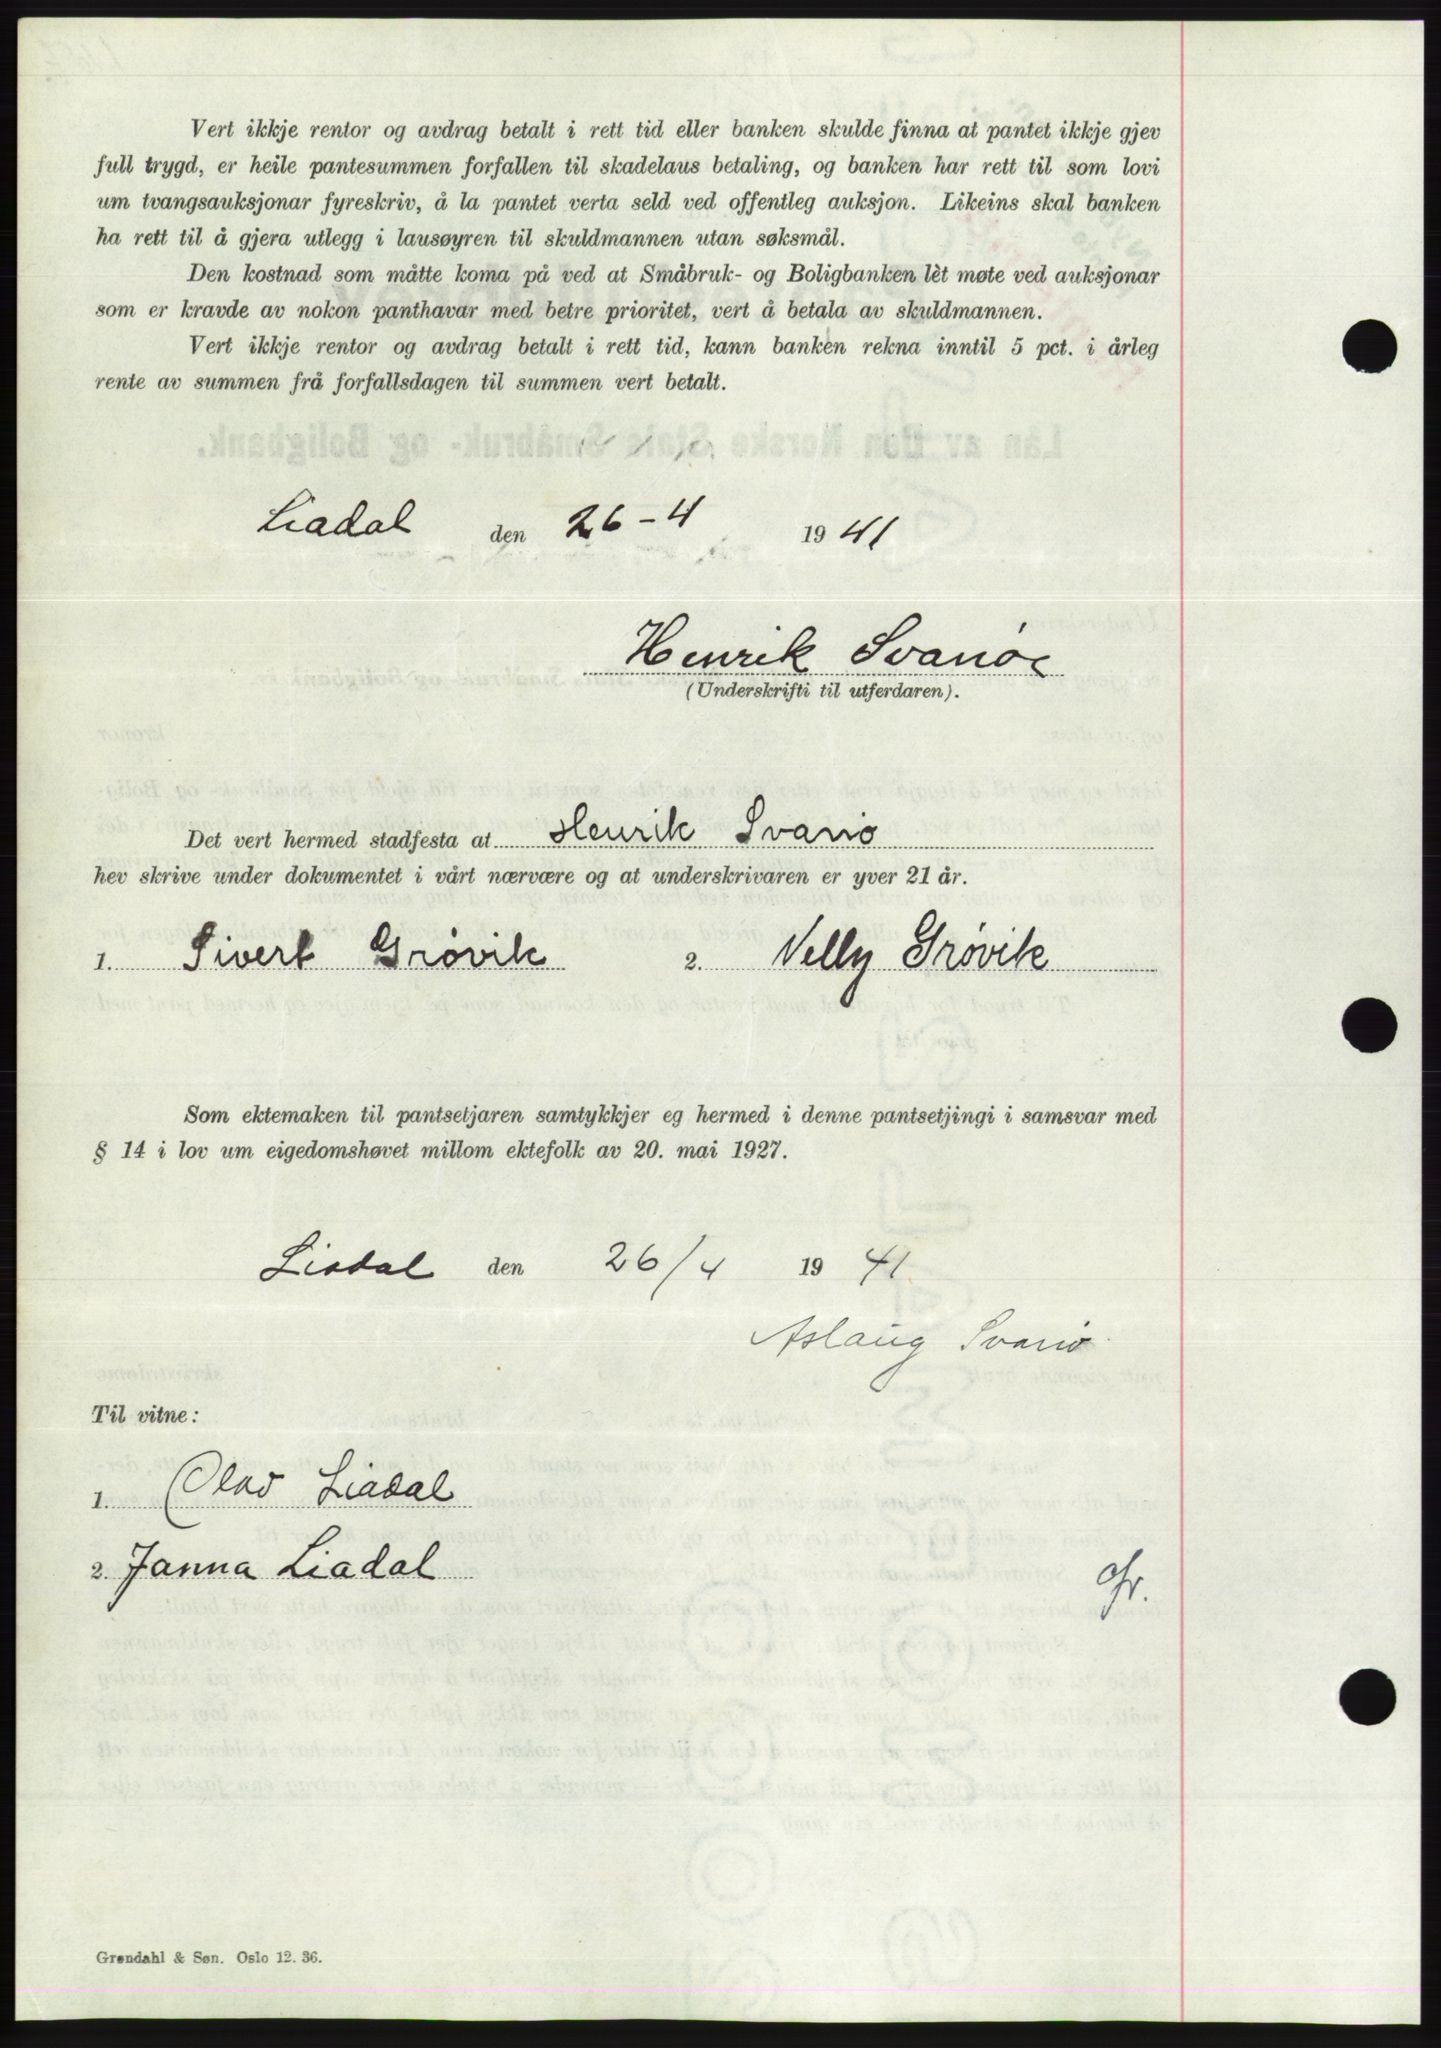 Vert ikkje rentor og avdrag betalt i rett tid eller banken skulde finna at pantet ikkje gjev
full trygd, er heile pantesummen forfallen til skadelaus betaling, og banken har rett til som lovi
um tvangsauksjonar fyreskriv, å la pantet verta seld ved offentleg auksjon. Likeins skal banken
ha rett til å gjera utlegg i lausøyren til skuldmannen utan søksmål.
Den kostnad som måtte koma på ved at Småbruk- og Boligbanken lèt møte ved auksjonar
som er kravde av nokon panthavar med betre prioritet, vert å betala av skuldmannen.
Vert ikkje rentor og avdrag betalt i rett tid, kann banken rekna inntil 5 pct. i årleg
rente av summen frå forfallsdagen til summen vert betalt.
Liadal den 26-4 1941
Henrik Svanø
(Underskrifti til utferdaren).
Det vert hermed stadfesta at Henrik Svanø
hev skrive under dokumentet i vårt nærvære og at underskrivaren er yver 21 år.
1. Sivert Grøvik 2. Nelly Grøvik
Som ektemaken til pantsetjaren samtykkjer eg hermed i denne pantsetjingi i samsvar med
§ 14 i lov um eigedomshøvet millom ektefolk av 20. mai 1927.
Liadal den 26/4 1941
Aslaug Svanø
Til vitne:
1. Olav Liadal
2. Janna Liadal
Grøndahl & Søn. Oslo 12. 36.